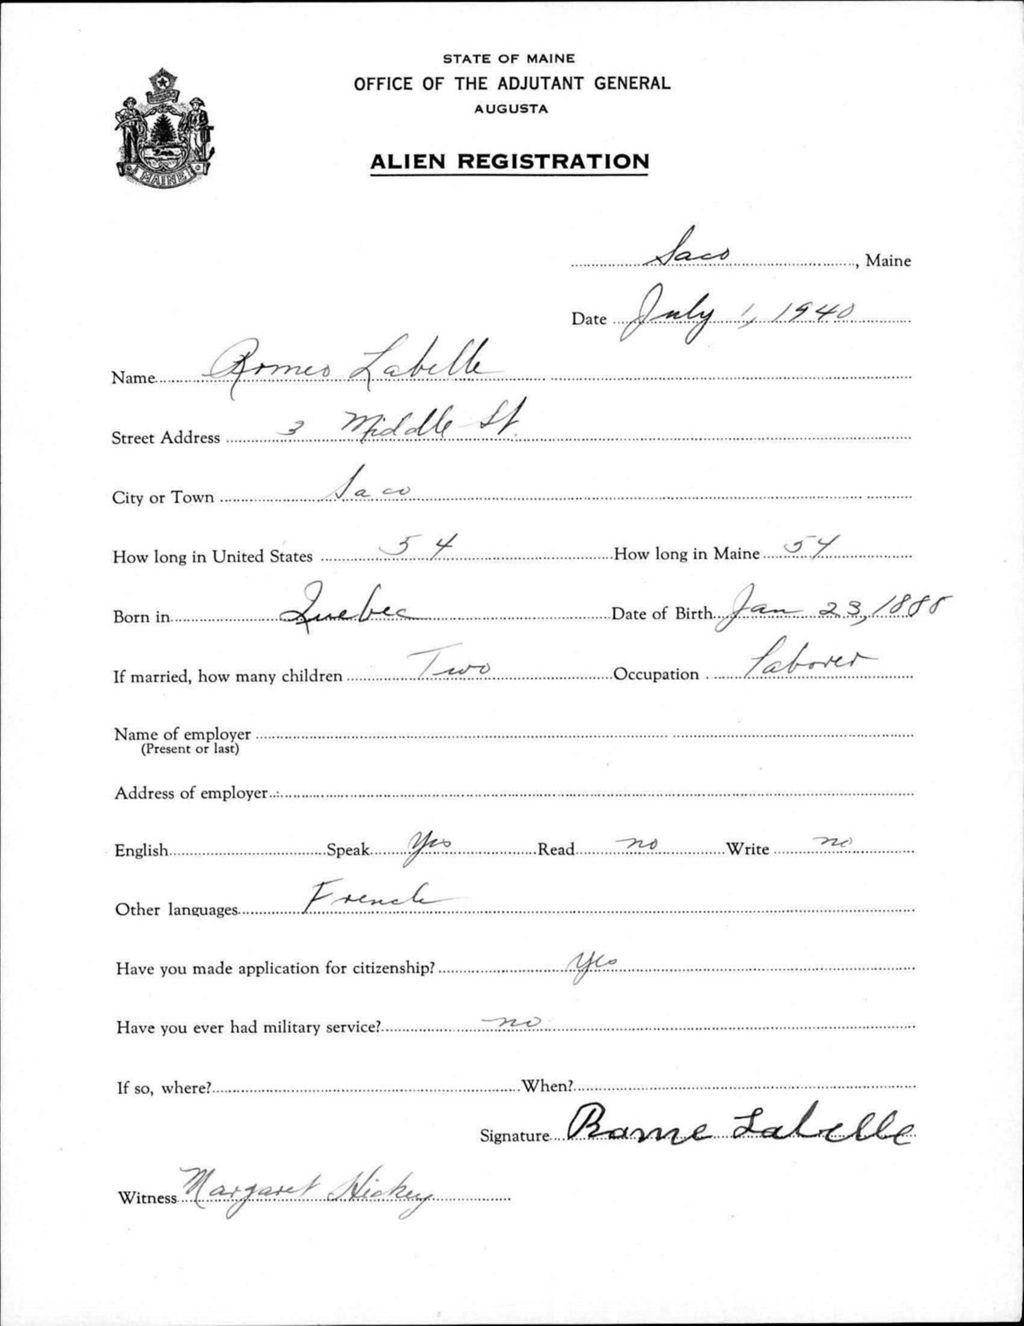 STATE OF MAINE
OFFICE OF THE ADJUTANT GENERAL
AUGUSTA
ALIEN REGISTRATION
MAINE
Saco, Maine
Date July 1, 1940
Name Romeo Labelle
Street Address 3 Middle St.
City or Town Saco
How long in United States 54 How long in Maine 54
Born in Quebec Date of Birth Jan 23, 1888
If married, how many children Two Occupation laborer
Name of employer
(Present or last)
Address of employer
English Speak Yes Read no Write no
Other languages French
Have you made application for citizenship? Yes
Have you ever had military service? no
If so, where? When?
Signature Rome Labelle
Witness Margaret Hickey